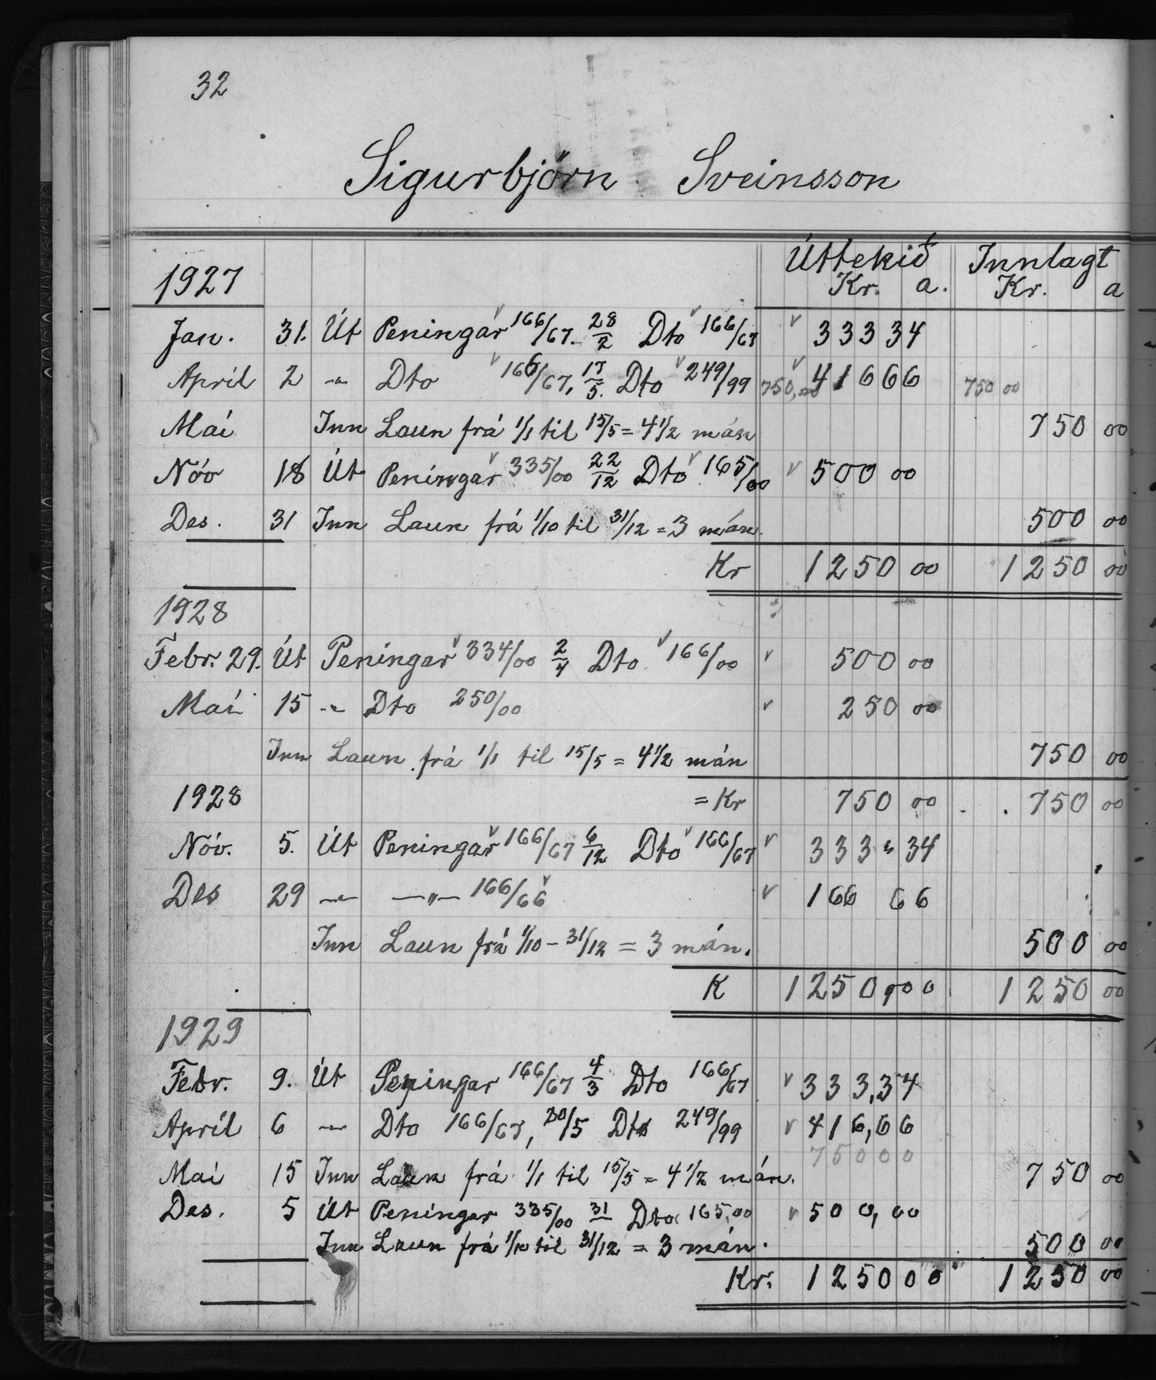 32
Sigurbjörn Sveinsson
Úttekið Innlagt
1927 Kr. a. Kr. a
Jan. 31. Út Peningar 166/67. 28/2 Dto 166/67 333 34
Apríl 2 -"- Dto 166/67, 17/5. Dto 249/99 750,00 416 66 750 00
Maí Inn Laun frá 1/1 til 15/5 = 4 1/2 mán 750 00
Nóv 18 Út Peningar 335/00 22/12 Dto 165/00 500 00
Des. 31 Inn Laun frá 1/10 til 31/12 = 3 mán. 500 00
Kr 1250 00 1250 00
1928
Febr. 29. Út Peningar 334/00 2/4 Dto 166/00 500 00
Maí 15 -"- Dto 250/00 250 00
Inn Laun frá 1/1 til 15/5 = 4 1/2 mán 750 00
1928 = Kr 750 00 750 00
Nóv. 5. Út Peningar 166/67 6/12 Dto 166/67 333 " 34
Des 29 -"- -"- 166/66 166 66
Inn Laun frá 1/10 - 31/12 = 3 mán. 500 00
K 1250,00 1250 00
1929
Febr. 9. Út Peningar 166/67 4/3 Dto 166/67 333,34
Apríl 6 -"- Dto 166/67, 30/5 Dto 249/99 416,66
750 00
Maí 15 Inn Laun frá 1/1 til 15/5 = 4 1/2 mán. 750 00
Des. 5 Út Peningar 335/00 31 Dto 165,00 500,00
Inn Laun frá 1/10 til 31/12 = 3 mán. 500 00
Kr. 1250 00 1250 00